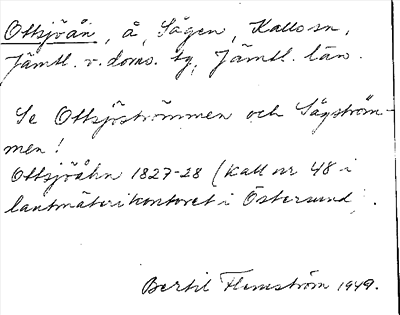 Ottsjöån, å, Sågen, Kall sn,
Jämtl. v. doms. tg, Jämtl. län.
Se Ottsjöströmmen och Sågström-
men!
Ottsjöåhn 1827-28 (Kall nr 48 i
lantmäterikontoret i Östersund).
Bertil Flemström 1949.